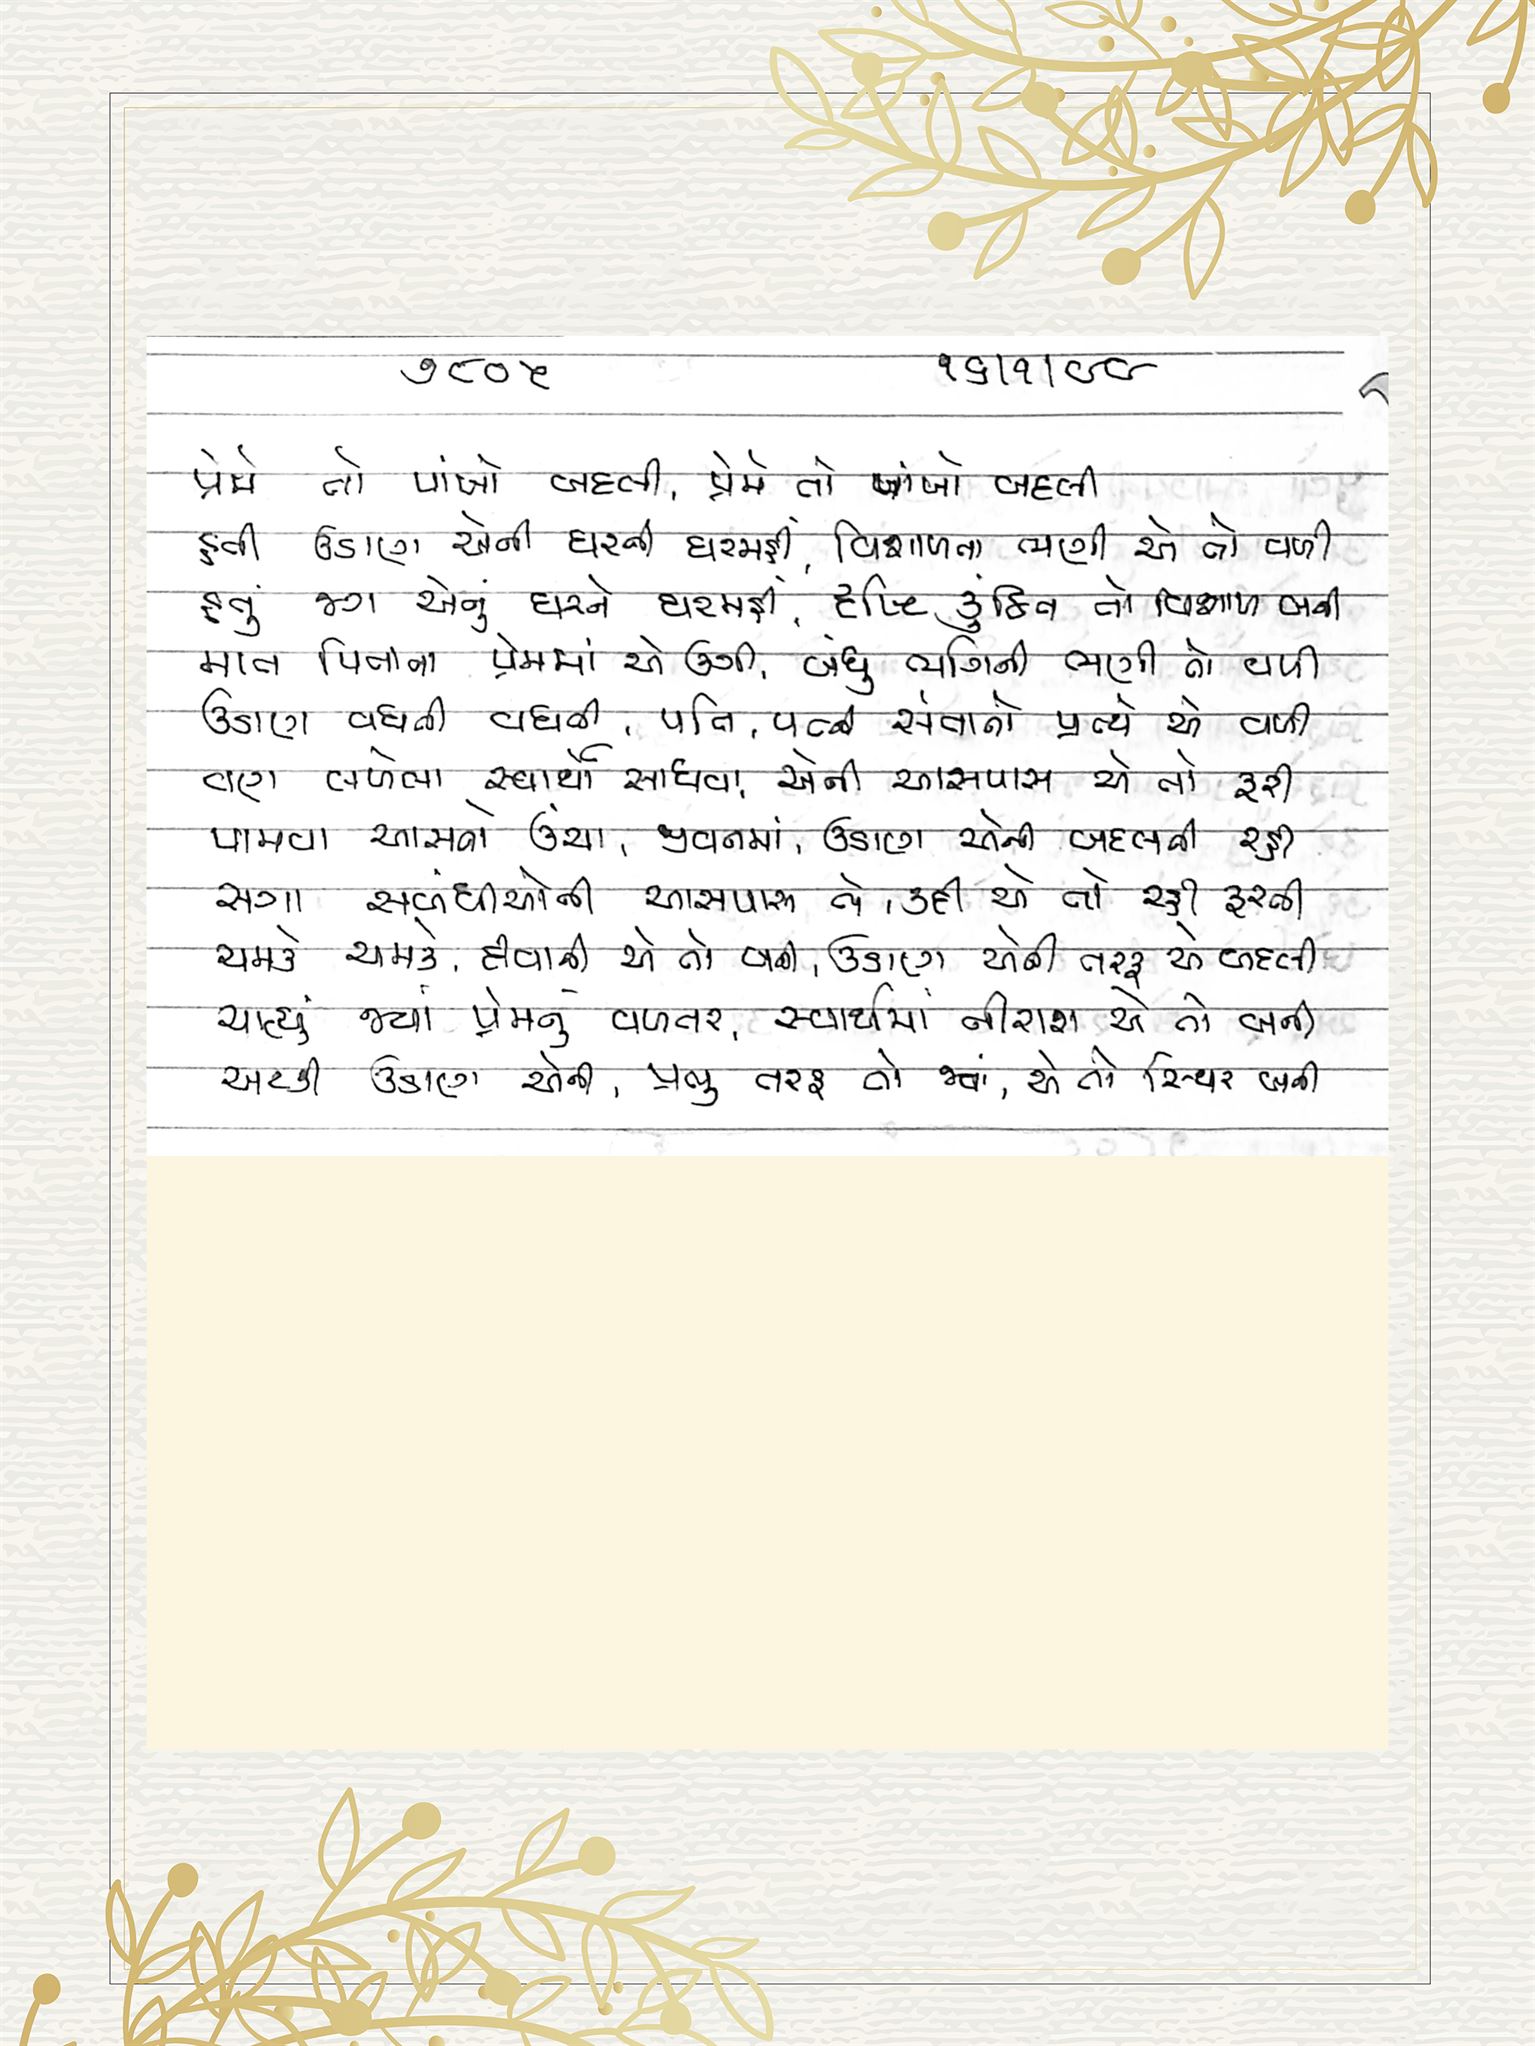 ૭૮૦૫ ૧૬/૧/૯૯
પ્રેમે તો પાંખો બદલી, પ્રેમે તો પાંખો બદલી
હતી ઉડાણ એની ઘરની ઘરમહીં, વિશાળતા ભણી એ તો વળી
હતું જગ એનું ઘરને ઘરમહીં, દૃષ્ટિ કુંઠિત તો વિશાળ બની
માત પિતાના પ્રેમમાં એ ઉગી, બંધુ ભગિની ભણી તો વળી
ઉડાણ વધતી વધતી, પતિ, પત્ની સંતાનો પ્રત્યે એ વળી
વણ લખેલા સ્વાર્થો સાધવા, એની આસપાસ એ તો ફરી
પામવા આસનો ઉંચા, જીવનમાં, ઉડાણ એની બદલાતી રહી
સગા સબંધીઓની આસપાસ તો, ઉડી એ તો રહી ફરતી
ચમકે ચમકે, દીવાની એ તો બની, ઉડાણ એની તરફ એ બદલી
ચાલ્યું જ્યાં પ્રેમનું વળતર, સ્વાર્થમાં નીરાશ એ તો બની
અટકી ઉડાણ એની, પ્રભુ તરફ તો જ્યાં, એ તો સ્થિર બની